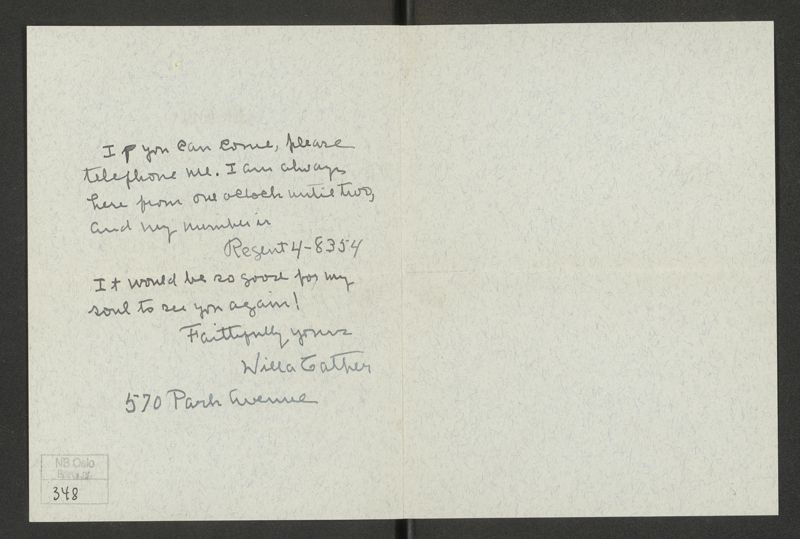 If you can come, please
telephone me. I am always
here from one oclock until two,
and my number is
Regent 4-8354
It would be so good for my
soul to see you again!
Faithfully yours
Willa Cather
570 Park Avenue
NB Oslo
348